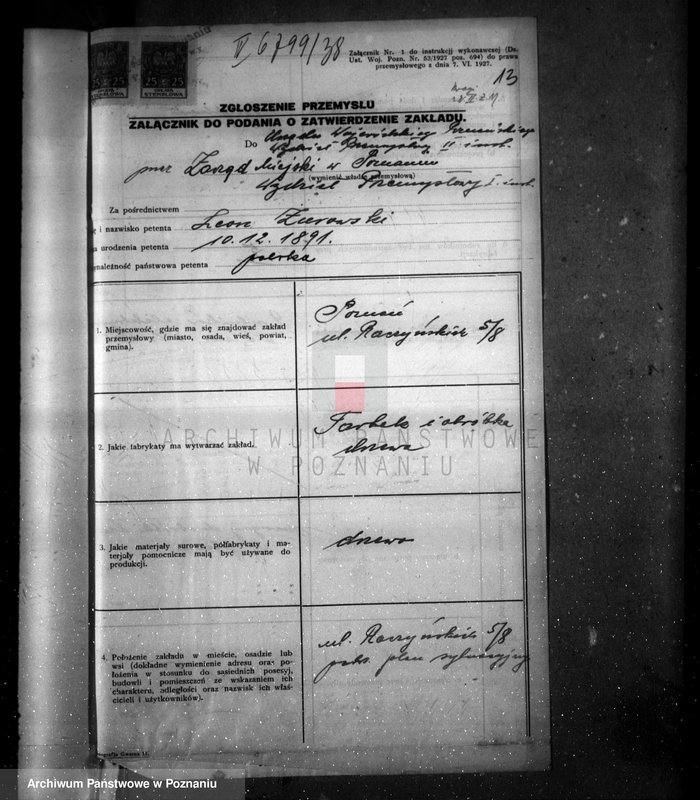 II 6799/38
Załącznik Nr. 1 do instrukcji wykonawczej (Dz.
Ust. Woj. Pozn. Nr. 53/1927 poz. 694) do prawa
przemysłowego z dnia 7. VI. 1927.
13
25 25
OPŁATA
STEMPLOWA
25 25
OPŁATA
STEMPLOWA
ZGŁOSZENIE PRZEMYSŁU
ZAŁĄCZNIK DO PODANIA O ZATWIERDZENIE ZAKŁADU.
Do Urzędu Wojewódzkiego Poznańskiego
Wydział Przemysłowy II inst.
przez Zarząd Miejski w Poznaniu
(wymienić władzę przemysłową)
Wydział Przemysłowy I. inst.
Za pośrednictwem
ę i nazwisko petenta Leon Żurowski
a urodzenia petenta 10. 12. 1891.
ynależność państwowa petenta polska
1. Miejscowość, gdzie ma się znajdować zakład
przemysłowy (miasto, osada, wieś, powiat,
gmina).
Poznań
ul. Raczyńskich 5/8
2. Jakie fabrykaty ma wytwarzać zakład.
Tartak i obróbka
drzewa
3. Jakie materjały surowe, półfabrykaty i ma-
terjały pomocnicze mają być używane do
produkcji.
drzewo
4. Położenie zakładu w mieście, osadzie lub
wsi (dokładne wymienienie adresu oraz po-
łożenia w stosunku do sąsiednich posesyj,
budowli i pomieszczeń ze wskazaniem ich
charakteru, odległości oraz nazwisk ich właś-
cicieli i użytkowników).
ul. Raczyńskich 5/8
patrz plan sytuacyjny
ARCHIWUM PAŃSTWOWE
W POZNANIU
Archiwum Państwowe w Poznaniu